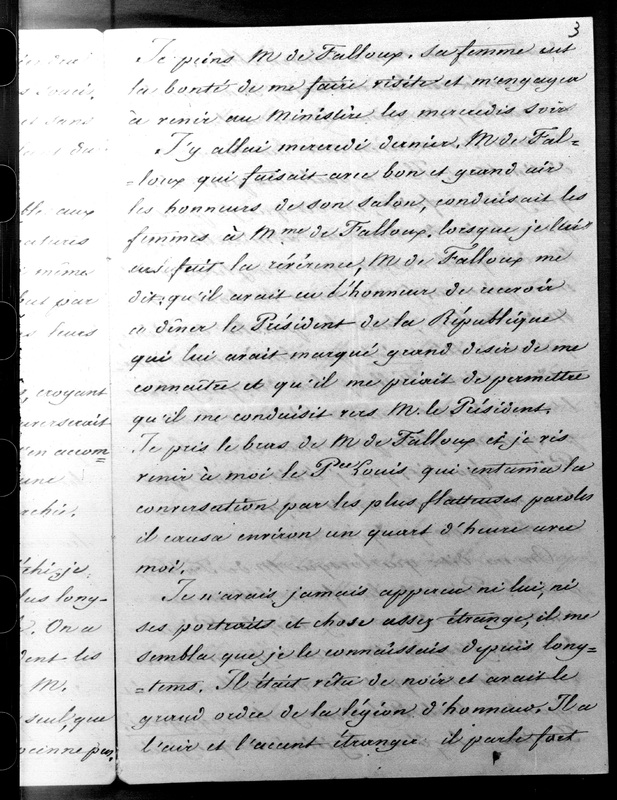 3
Je peins M de Falloux. Sa femme eut
la bonté de me faire visite et m'engagea
à venir au Ministère les mercredis soir
J'y allai mercredi dernier. M de Fal=
=loux qui faisait avec bon et grand air
les honneurs de son salon, conduisait les
femmes à Mme de Falloux. lorsque je lui
eus fait la révérence, M de Falloux me
dit qu'il avait eu l'honneur de recevoir
a dîner le Président de la République
qui lui avait marqué grand desir de me
connaître et qu'il me priait de permettre
qu'il me conduisit vers M. le Président.
Je pris le bras de M de Falloux et je vis
venir à moi le Pce Louis qui entama la
conversation par les plus flatteuses paroles
il causa environ un quart d'heure avec
moi.
Je n'avais jamais apperçu ni lui, ni
ses portraits et chose assez étrange, il me
sembla que je le connaissais depuis long=
=tems. Il était vêtu de noir et avait le
grand ordre de la légion d'honneur. Il a
l'air et l'accent étranger il parle fort
ble aux
même
but par
leurs
croyant
une
je
long-
. On a
les
M.
seul, que